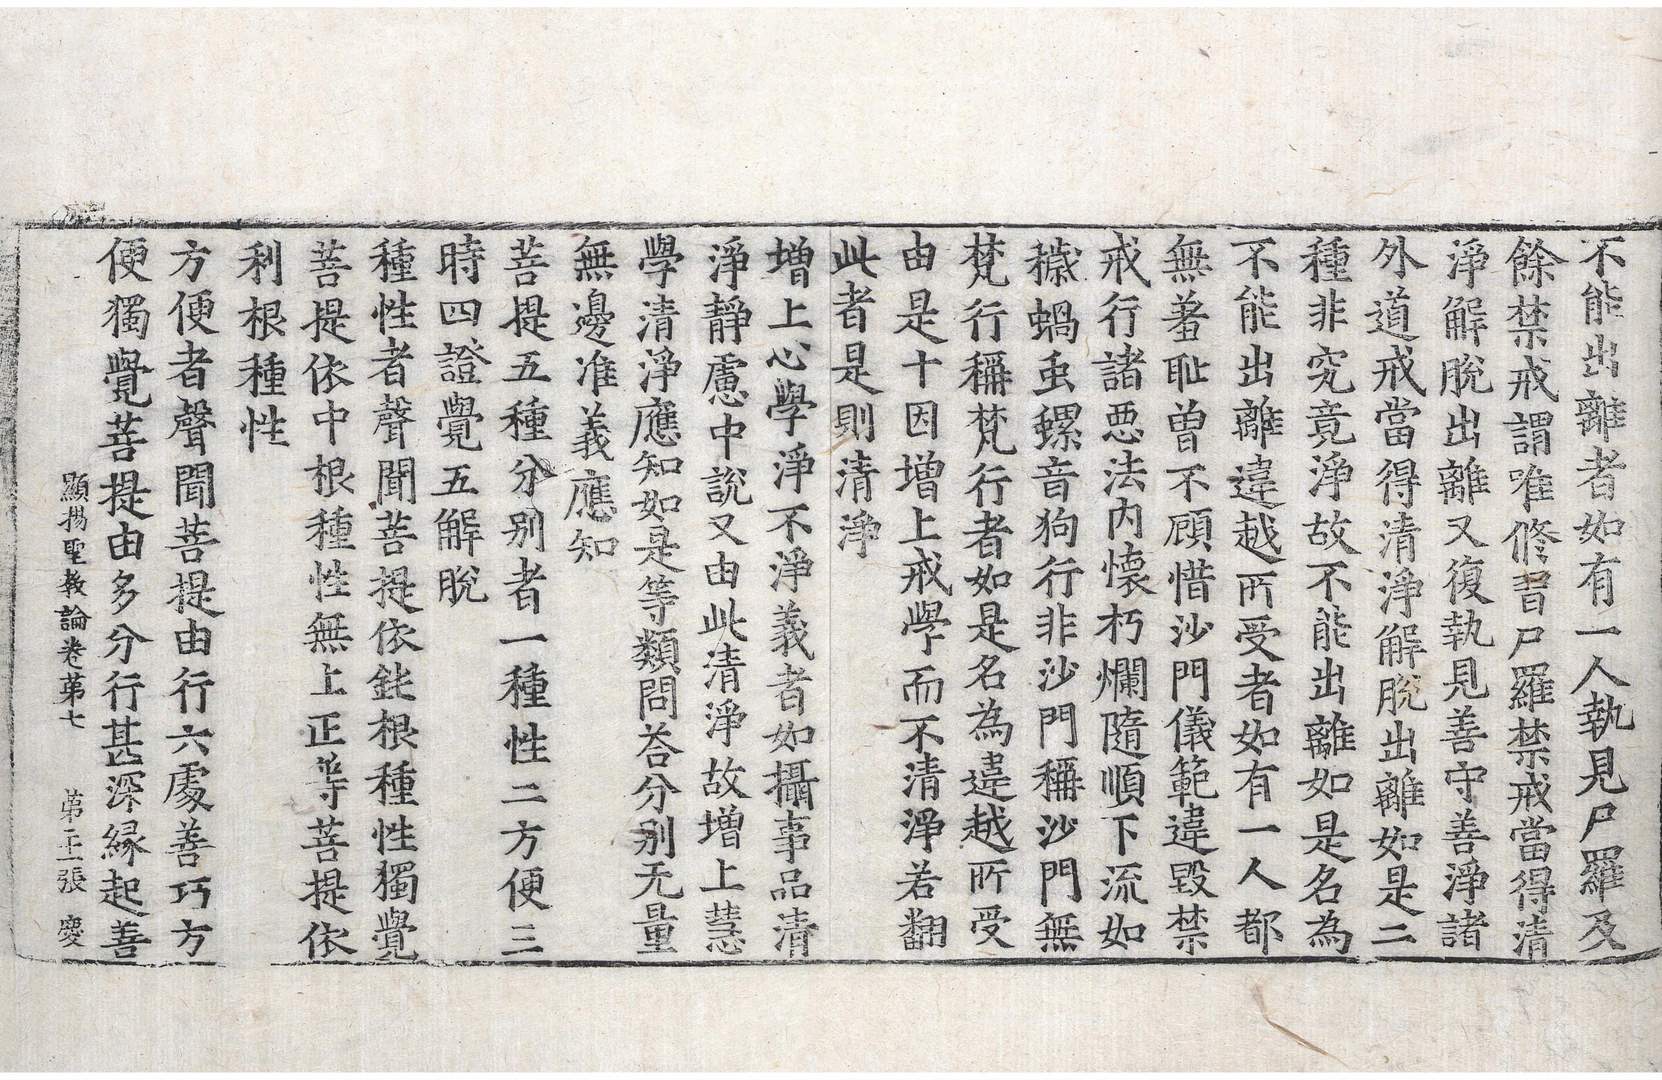 不能出離者如有一人執見尸羅及
餘禁戒謂唯修習尸羅禁戒當得清
淨解脫出離又復執見善守善淨諸
外道戒當得清淨解脫出離如是二
種非究竟淨故不能出離如是名為
不能出離違越所受者如有一人都
無羞耻曾不顧惜沙門儀範違毀禁
戒行諸惡法內懷朽爛隨順下流如
穢蝸虫螺音狗行非沙門稱沙門無
梵行稱梵行者如是名為違越所受
由是十因增上戒學而不清淨若翻
此者是則清淨
增上心學淨不淨義者如攝事品清
淨靜慮中說又由此清淨故增上慧
學清淨應知如是等類問荅分別无量
無邊准義應知
菩提五種分別者一種性二方便三
時四證覺五解脫
種性者聲聞菩提依鈍根種性獨覺
菩提依中根種性無上正等菩提依
利根種性
方便者聲聞菩提由行六處善巧方
便獨覺菩提由多分行甚深縁起善
顯揚聖教論卷苐七 苐 張 慶